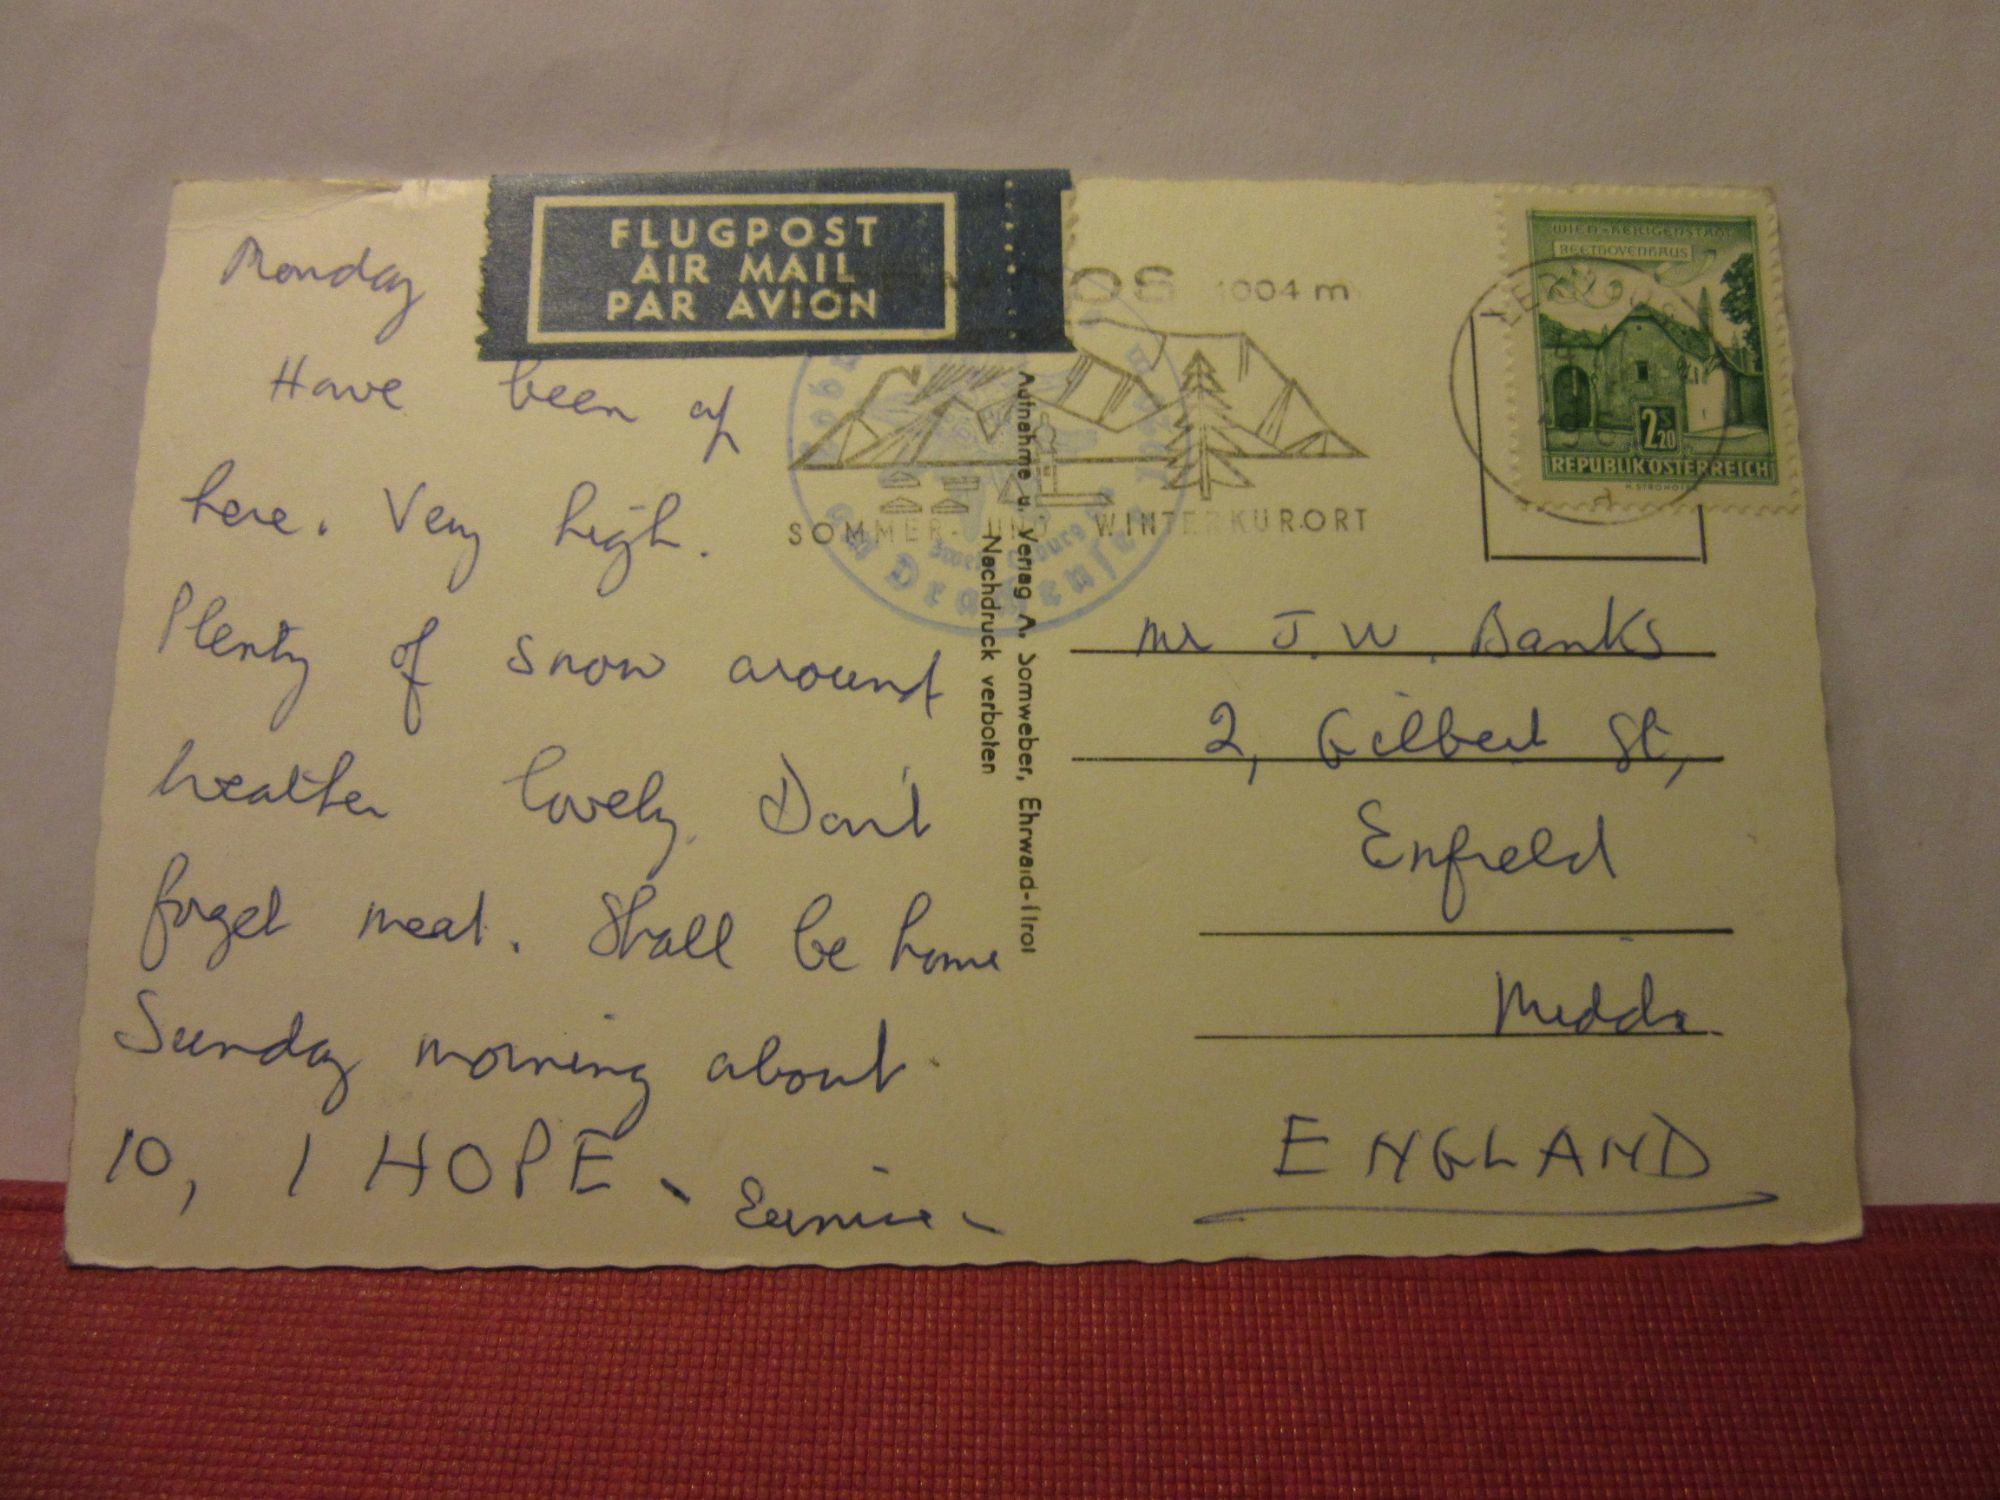 FLUGPOST
AIR MAIL
PAR AVION
1004 m
SOMMER- UND WINTERKURORT
WIEN-HEILIGENSTADT
BEETHOVENHAUS
2 S 20
REPUBLIK OSTERREICH
Monday
Have been up
here. Very high.
Plenty of snow around
weather lovely. Don't
forget meat. Shall be home
Sunday morning about
10, I HOPE -
Eunice -
Aufnahme u. Verlag A. Somweber, Ehrwald-Tirol
Nachdruck verboten
Mr J. W. Banks
2, Gilbert St,
Enfield
Middx.
ENGLAND